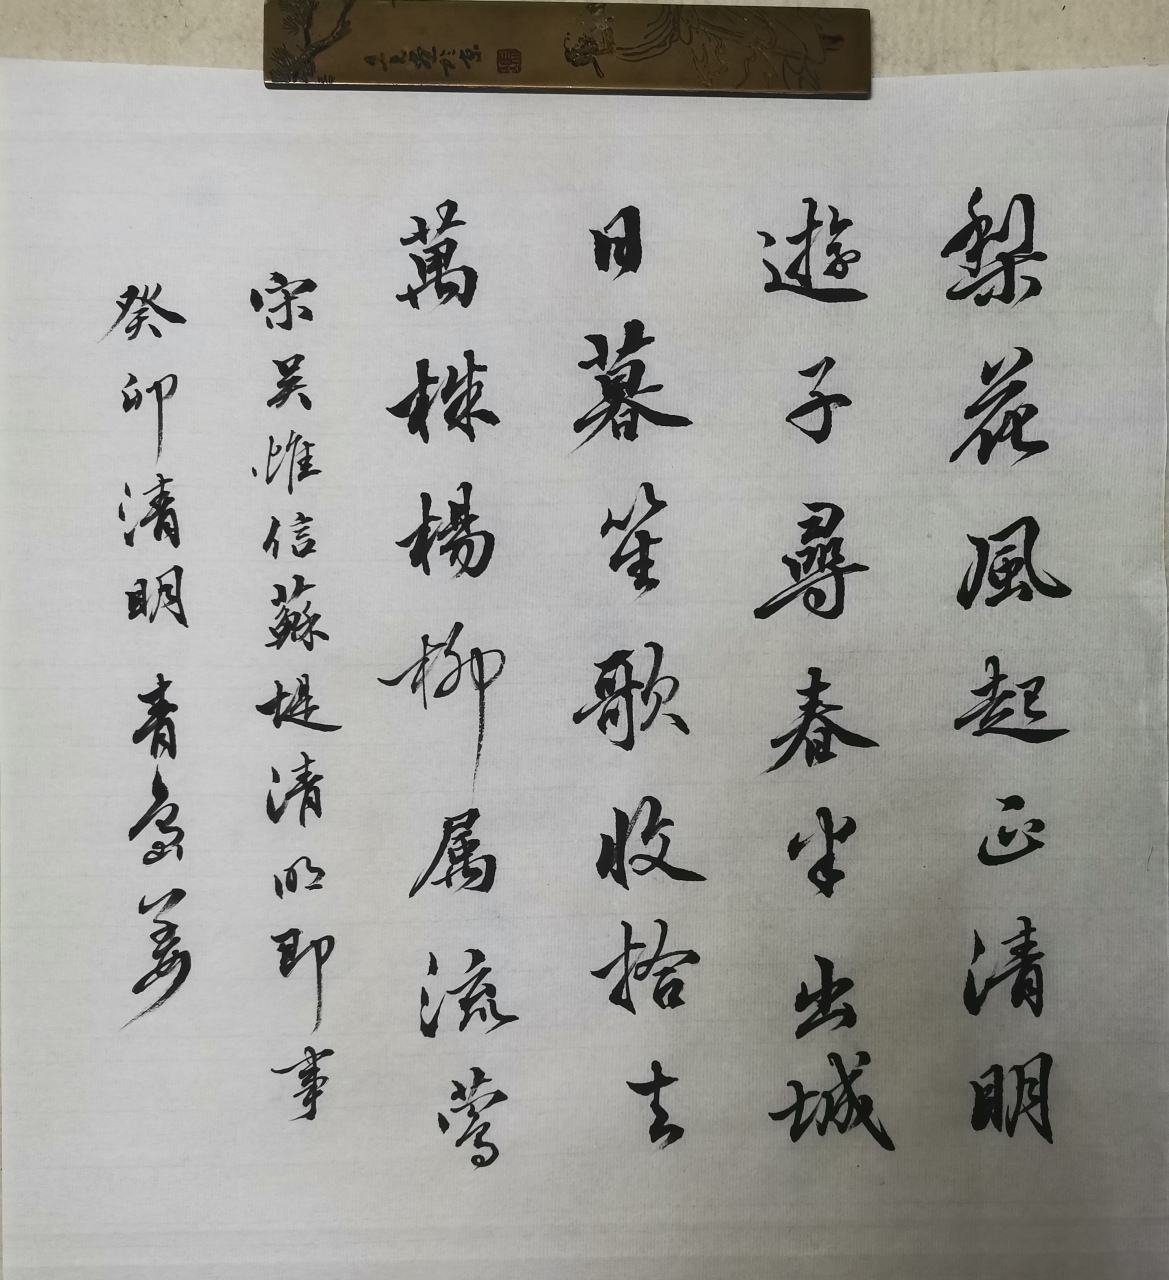 梨花風起正清明
遊子尋春半出城
日暮笙歌收拾去
萬株楊柳属流莺
宋吴惟信蘇堤清明即事
癸卯清明 青島姜